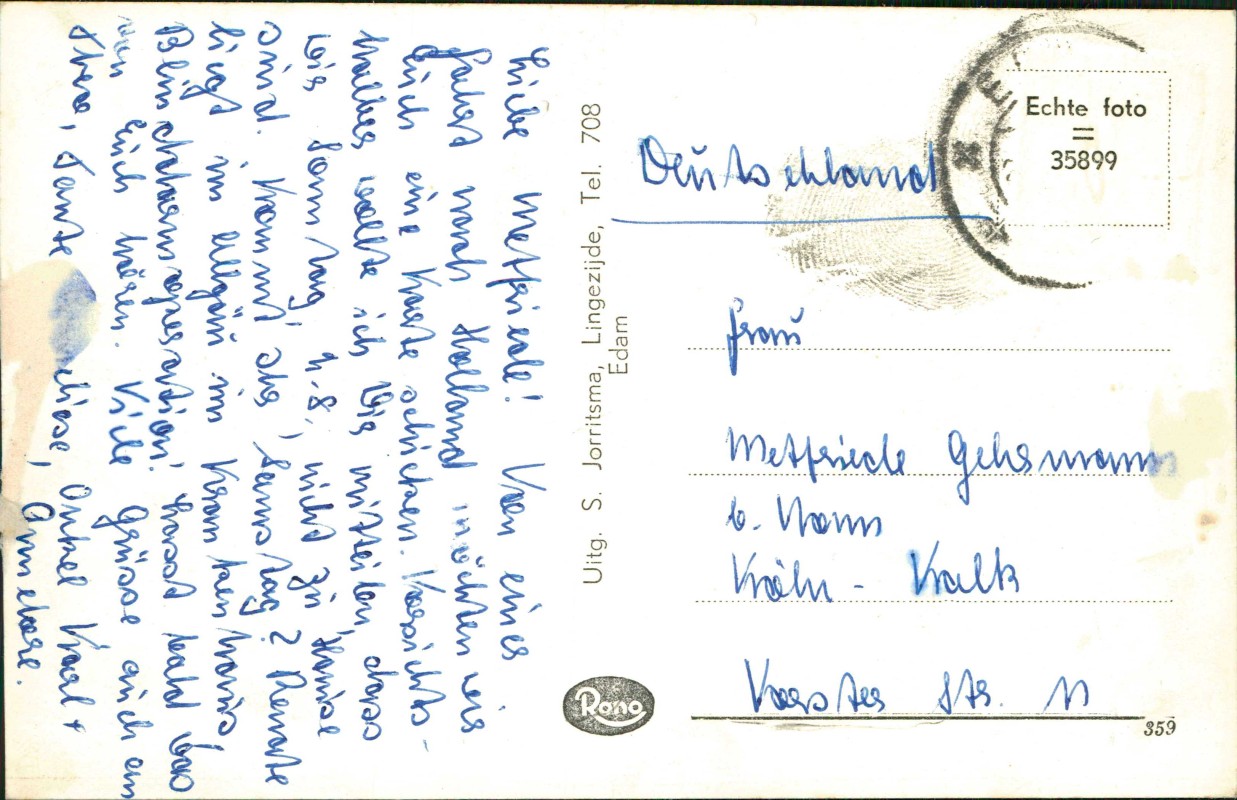 Liebe Metfriede! Von einer
Fahrt nach Holland möchten wir
Euch eine Karte schicken. Vorsichts-
halber wollte ich Dir mitteilen, dass
wir Sonntag, 4.8., nicht zu Hause
sind. Kommst du Samstag? Renate
liegt im Allgäu im Krankenhaus
Blinddarmoperation. Lasst bald was
von Euch hören. Viele Grüsse auch an
Thea, Tante Onkel Karl +
Annelore.
Uitg. S. Jorritsma, Lingezijde, Tel. 708
Edam
Rano
Echte foto
=
35899
Deutschland
Frau
Metfriede Gehrmann
b. Nann
Köln - Kalk
Vorster Str. 11
359